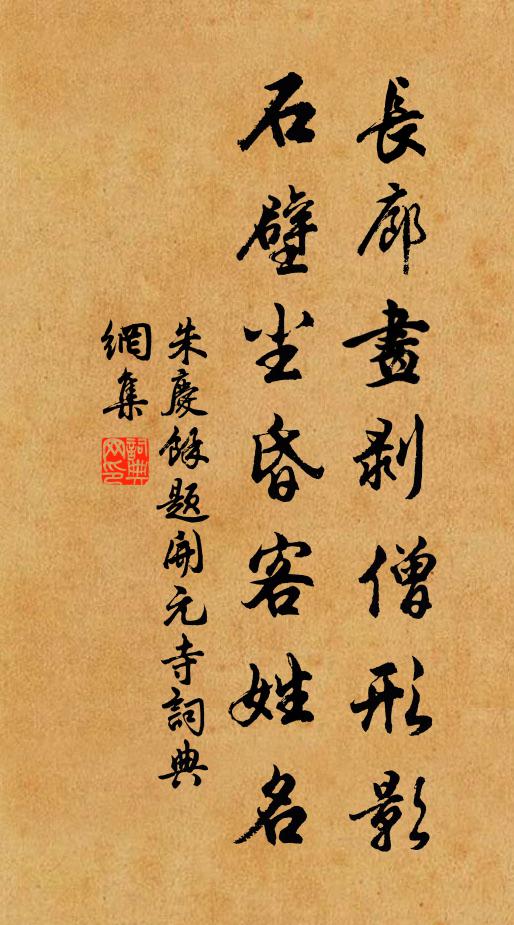 長廊畫剥僧形影
石壁尘昏客姓名
朱慶餘题開元寺詞典
網集
詞典
网印